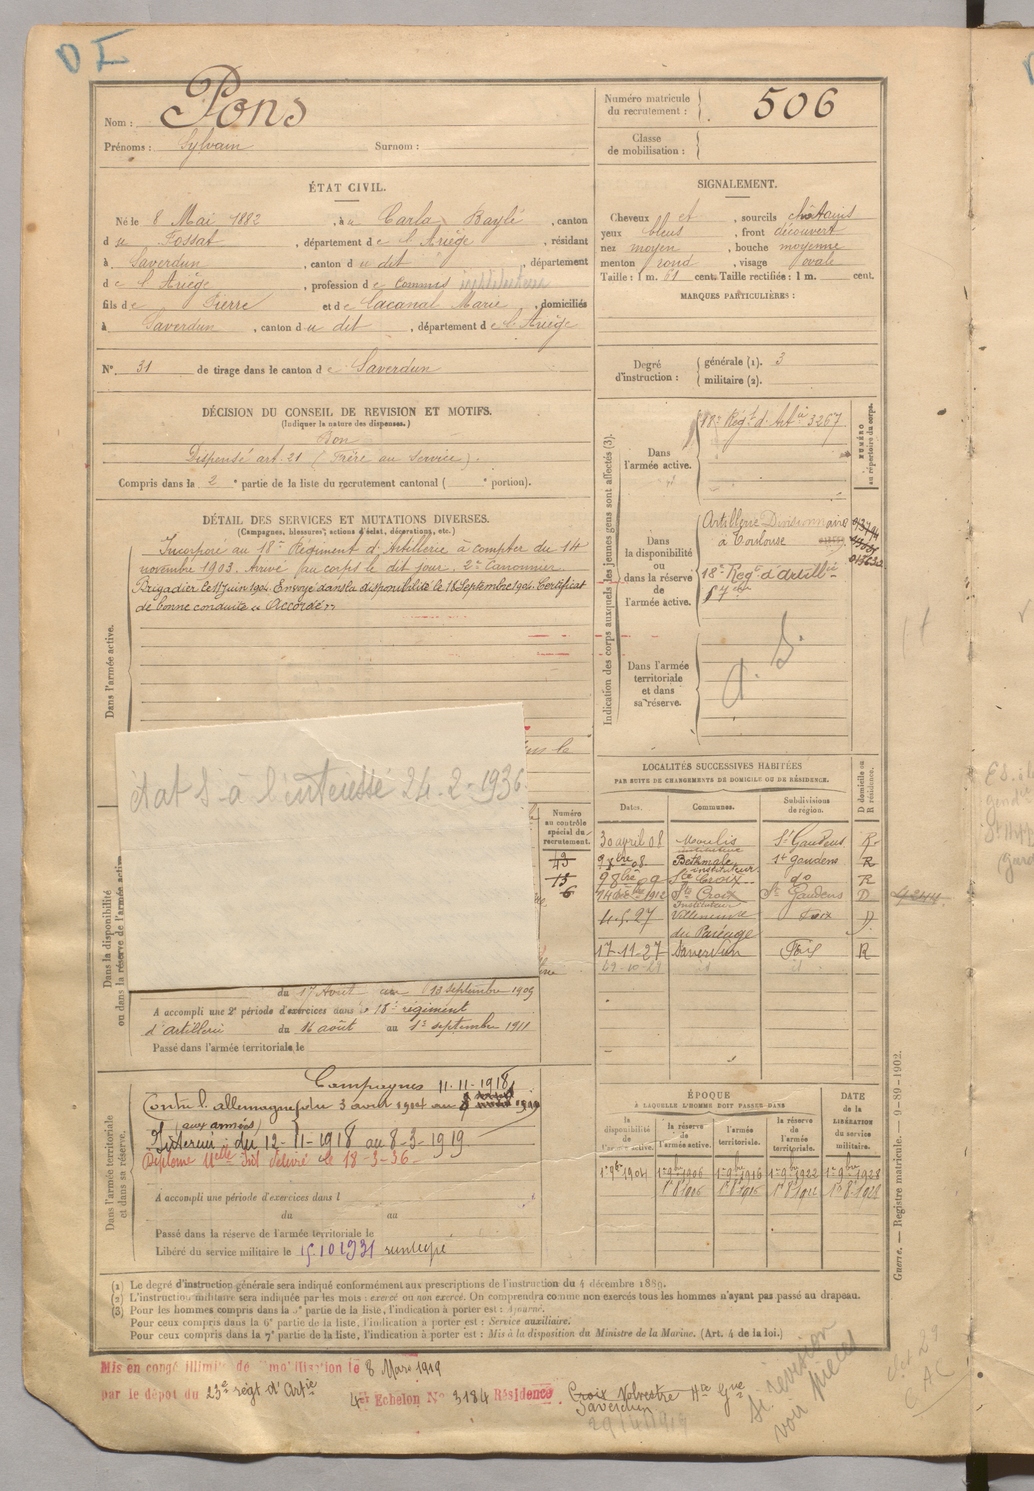 Nom : Pons
Prénoms : Sylvain Surnom :
Numéro matricule du recrutement : 506
Classe de mobilisation :
ÉTAT CIVIL.
Né le 8 Mai 1882, à u Carla Baylé, canton
d u Fossat, département de l'Ariège, résidant
à Saverdun, canton d u dit, département
de l'Ariège, profession de commis instituteur
fils de Pierre et de Lacanal Marie, domiciliés
à Saverdun, canton d u dit, département de l'Ariège
N° 31 de tirage dans le canton de Saverdun
SIGNALEMENT.
Cheveux et, sourcils châtains
yeux bleus, front découvert
nez moyen, bouche moyenne
menton rond, visage ovale
Taille : 1 m. 61 cent. Taille rectifiée : 1 m. cent.
MARQUES PARTICULIÈRES :
Degré d'instruction : générale (1). 3
militaire (2).
DÉCISION DU CONSEIL DE REVISION ET MOTIFS.
(Indiquer la nature des dispenses.)
Bon
Dispensé art. 21 (Frère au Service).
Compris dans la 2e partie de la liste du recrutement cantonal ( e portion).
DÉTAIL DES SERVICES ET MUTATIONS DIVERSES.
(Campagnes, blessures, actions d'éclat, décorations, etc.)
Dans l'armée active.
Incorporé au 18e Régiment d'Artillerie à compter du 14
novembre 1903. Arrivé au corps le dit jour. 2e Canonnier
Brigadier le 11 Juin 1904. Envoyé dans la disponibilité le 18 Septembre 1904. Certificat
de bonne conduite "Accordé"
Indication des corps auxquels les jeunes gens sont affectés (3).
NUMÉRO au répertoire du corps.
Dans l'armée active.
18e Régt d'Art ie 3267
Dans la disponibilité ou dans la réserve de l'armée active.
Artillerie Divisionnaire
à Toulouse
18e Regt d'artill ie
Dans l'armée territoriale et dans sa réserve.
état S-à l'intéressé 24-2-1936
Dans la disponibilité ou dans la réserve de l'armée active
Numéro au contrôle spécial du recrutement.
43
15
6
du 17 Août au 13 septembre 1909
A accompli une 2e période d'exercices dans le 18e régiment
d'artillerie du 16 août au 1er septembre 1911
Passé dans l'armée territoriale le
LOCALITÉS SUCCESSIVES HABITÉES
PAR SUITE DE CHANGEMENTS DE DOMICILE OU DE RÉSIDENCE.
Dates. Communes. Subdivisions de région. D domicile ou R résidence.
30 avril 08 Moulis St Gaudens R
instituteur
Bethmale St Gaudens R
instituteur
9 8bre 09 Ste Croix do R
1912 Ste Croix St Gaudens D
Instituteur
4.5.27 Villeneuve Foix D
du Paréage
17-11-27 Saverdun Foix R
4244
Dans l'armée territoriale et dans sa réserve.
Campagnes 11-11-1918
Contre l'allemagne du 3 août 1914 au
(aux armées)
Intérieur du 12-11-1918 au 8-3-1919
A accompli une période d'exercices dans l
du au
Passé dans la réserve de l'armée territoriale le
Libéré du service militaire le 15.10 1931
ÉPOQUE
A LAQUELLE L'HOMME DOIT PASSER DANS
la disponibilité de l'armée active.
la réserve de l'armée active.
l'armée territoriale.
la réserve de l'armée territoriale.
DATE de la LIBÉRATION du service militaire.
1er 9bre 1904 1er 9bre 1906 1er 9bre 1916 1er 9bre 1922 1er 9bre 1928
Guerre. — Registre matricule. — 9-89-1902.
(1) Le degré d'instruction générale sera indiqué conformément aux prescriptions de l'instruction du 4 décembre 1889.
(2) L'instruction militaire sera indiquée par les mots : exercé ou non exercé. On comprendra comme non exercés tous les hommes n'ayant pas passé au drapeau.
(3) Pour les hommes compris dans la 5e partie de la liste, l'indication à porter est : Ajourné.
Pour ceux compris dans la 6e partie de la liste, l'indication à porter est : Service auxiliaire.
Pour ceux compris dans la 7e partie de la liste, l'indication à porter est : Mis à la disposition du Ministre de la Marine. (Art. 4 de la loi.)
Mis en congé illimité de démobilisation le 8 Mars 1919
par le dépôt du 23e régt d'Artie 4e Echelon N° 3184 Résidence Croix Volvestre Hte Gne
Saverdun
Si revision
voir pièces